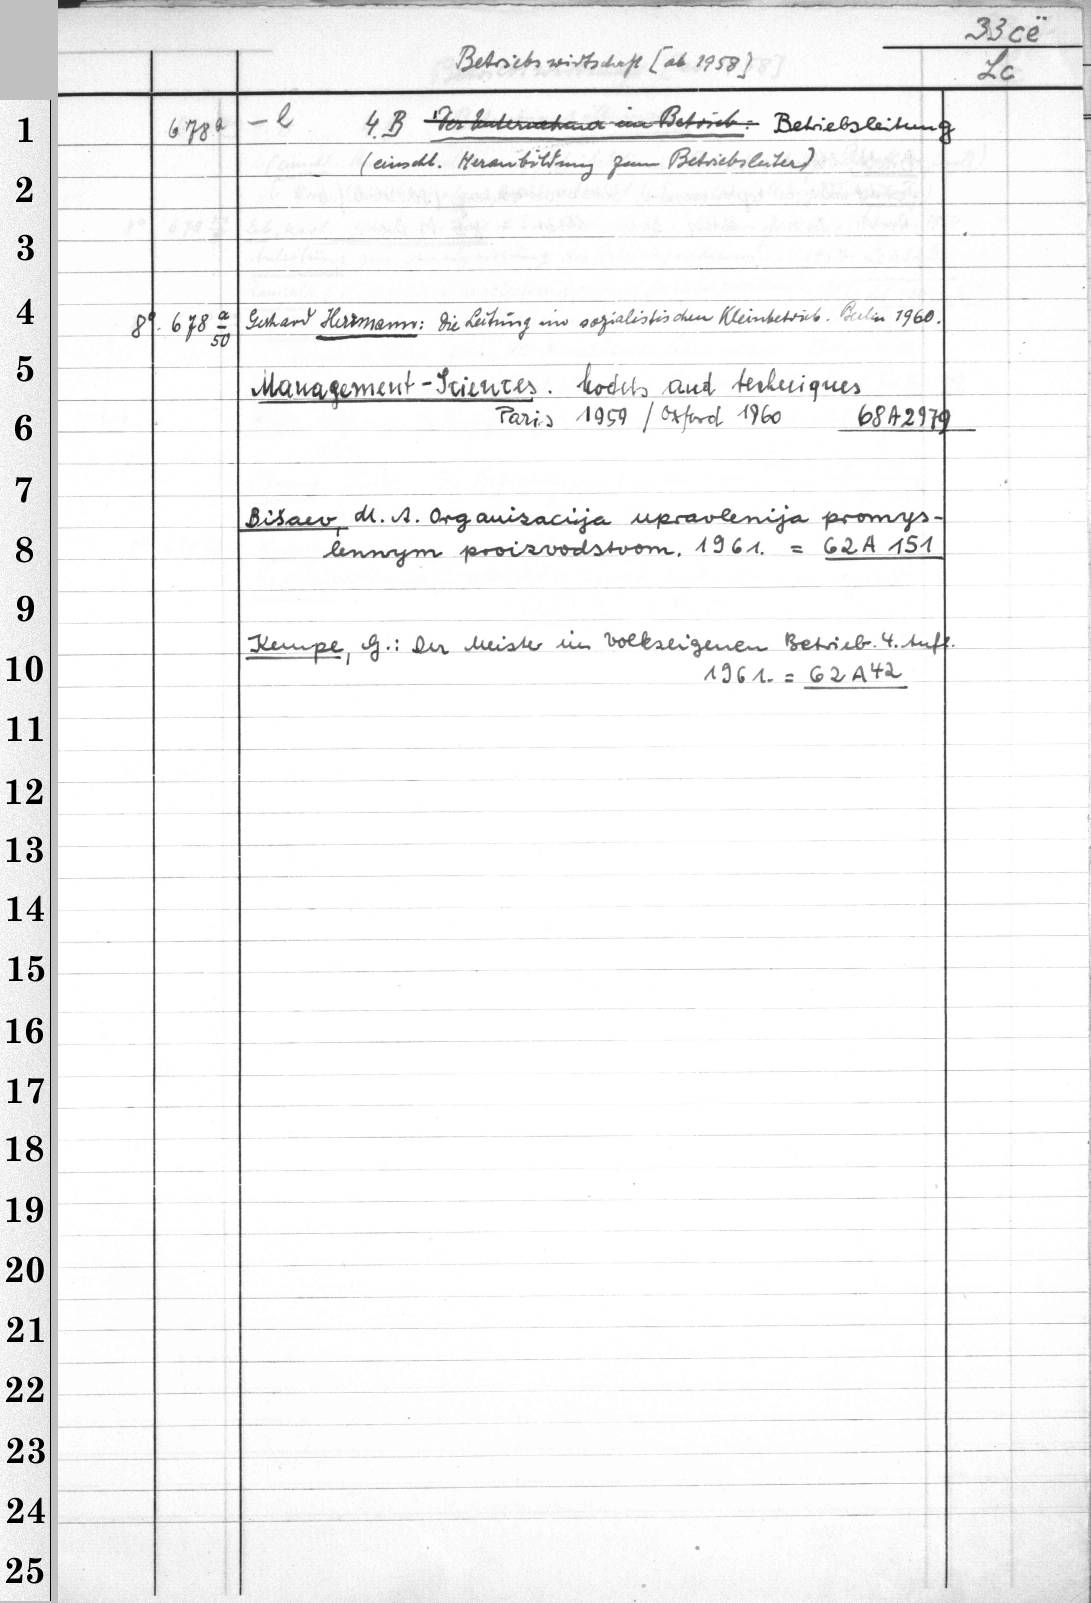 33cë
Betriebswirtschaft [ab 1958]
Lc
1 678 a – l 4. B Der Unternehmer im Betrieb: Betriebsleitung
(einschl. Heranbildung zum Betriebsleiter)
2
3
4 8° 678 a/50 Gerhard Herrmann: Die Leitung im sozialistischen Kleinbetrieb. Berlin 1960.
5 Management-Sciences. Models and techniques
6 Paris 1959 / Oxford 1960 68A2979
7
Bišaev, M. A. Organizacija upravlenija promys-
8 lennym proizvodstvom. 1961. = 62A 151
9
Kempe, G.: Der Meister im volkseigenen Betrieb. 4. Aufl.
10 1961. = 62A42
11
12
13
14
15
16
17
18
19
20
21
22
23
24
25